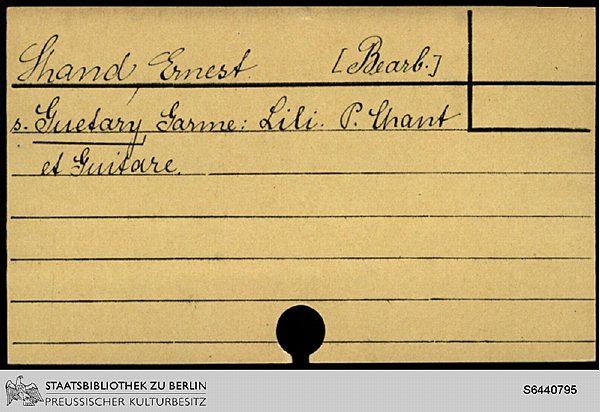 Shand, Ernest [Bearb.]
s. Guetary, Garme: Lili. P. Chant
et Guitare.
STAATSBIBLIOTHEK ZU BERLIN
PREUSSISCHER KULTURBESITZ
S6440795